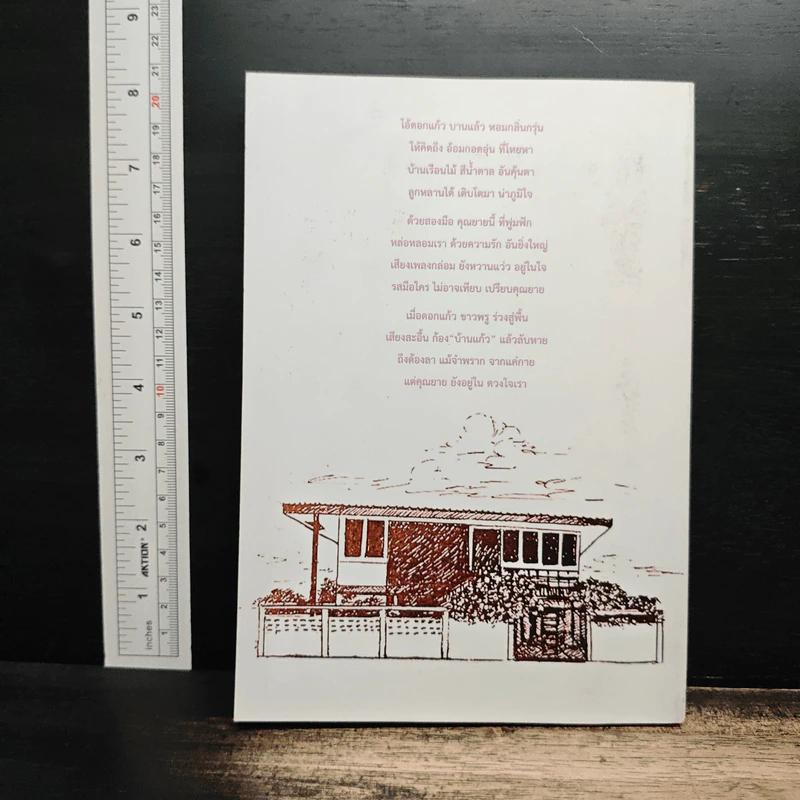 ไอ้ดอกแก้ว บานแล้ว หอมกลิ่นกรุ่น
ให้คิดถึง อ้อมกอดอุ่น ที่โหยหา
บ้านเรือนไม้ สีน้ำตาล อันคุ้นตา
ลูกหลานได้ เติบโตมา น่าภูมิใจ
ด้วยสองมือ คุณยายนี้ ที่ฟูมฟัก
หล่อหลอมเรา ด้วยความรัก อันยิ่งใหญ่
เสียงเพลงกล่อม ยังหวานแว่ว อยู่ในใจ
รสมือใคร ไม่อาจเทียบ เปรียบคุณยาย
เมื่อดอกแก้ว ขาวพรู ร่วงสู่พื้น
เสียงสะอื้น ก้อง"บ้านแก้ว" แล้วลับหาย
ถึงต้องลา แม้จำพราก จากแค่กาย
แต่คุณยาย ยังอยู่ใน ดวงใจเรา
9
8
7
6
5
4
3
2
1
inches
AKTION
23
22
21
20
19
18
17
16
15
14
13
12
11
10
9
8
7
6
5
4
3
2
1